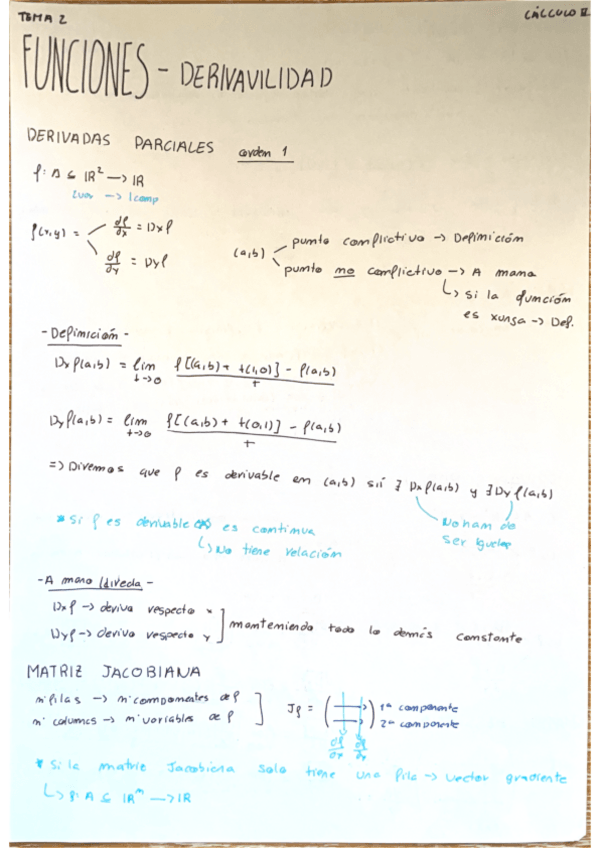 TEMA 2
CÁLCULO II
FUNCIONES - DERIVAVILIDAD
DERIVADAS PARCIALES orden 1
f: A ⊆ IR² → IR
2var → 1comp
f(x,y) = df/∂x = Dxf
df/∂y = Dyf
(a,b) punto conflictivo → Definición
punto no conflictivo → A mano
↳ si la función
es xunga → Def.
- Definición -
Dxf(a,b) = lim t→0 f[(a,b) + t(1,0)] - f(a,b) / t
Dyf(a,b) = lim t→0 f[(a,b) + t(0,1)] - f(a,b) / t
=> Diremos que f es derivable en (a,b) sii ∃ Dxf(a,b) y ∃ Dyf(a,b)
No han de
ser iguales
* Si f es derivable es continua
↳ No tiene relación
- A mano / directa -
Dxf → deriva respecto x
Dyf → deriva respecto y ] manteniendo todo lo demás constante
MATRIZ JACOBIANA
nº filas → nº componentes de f
nº columnas → nº variables de f ] Jf = ( → → ) 1ª componente
2ª componente
df/∂x df/∂y
* Si la matriz Jacobiana solo tiene una fila → vector gradiente
↳ f: A ⊆ IRᵐ → IR